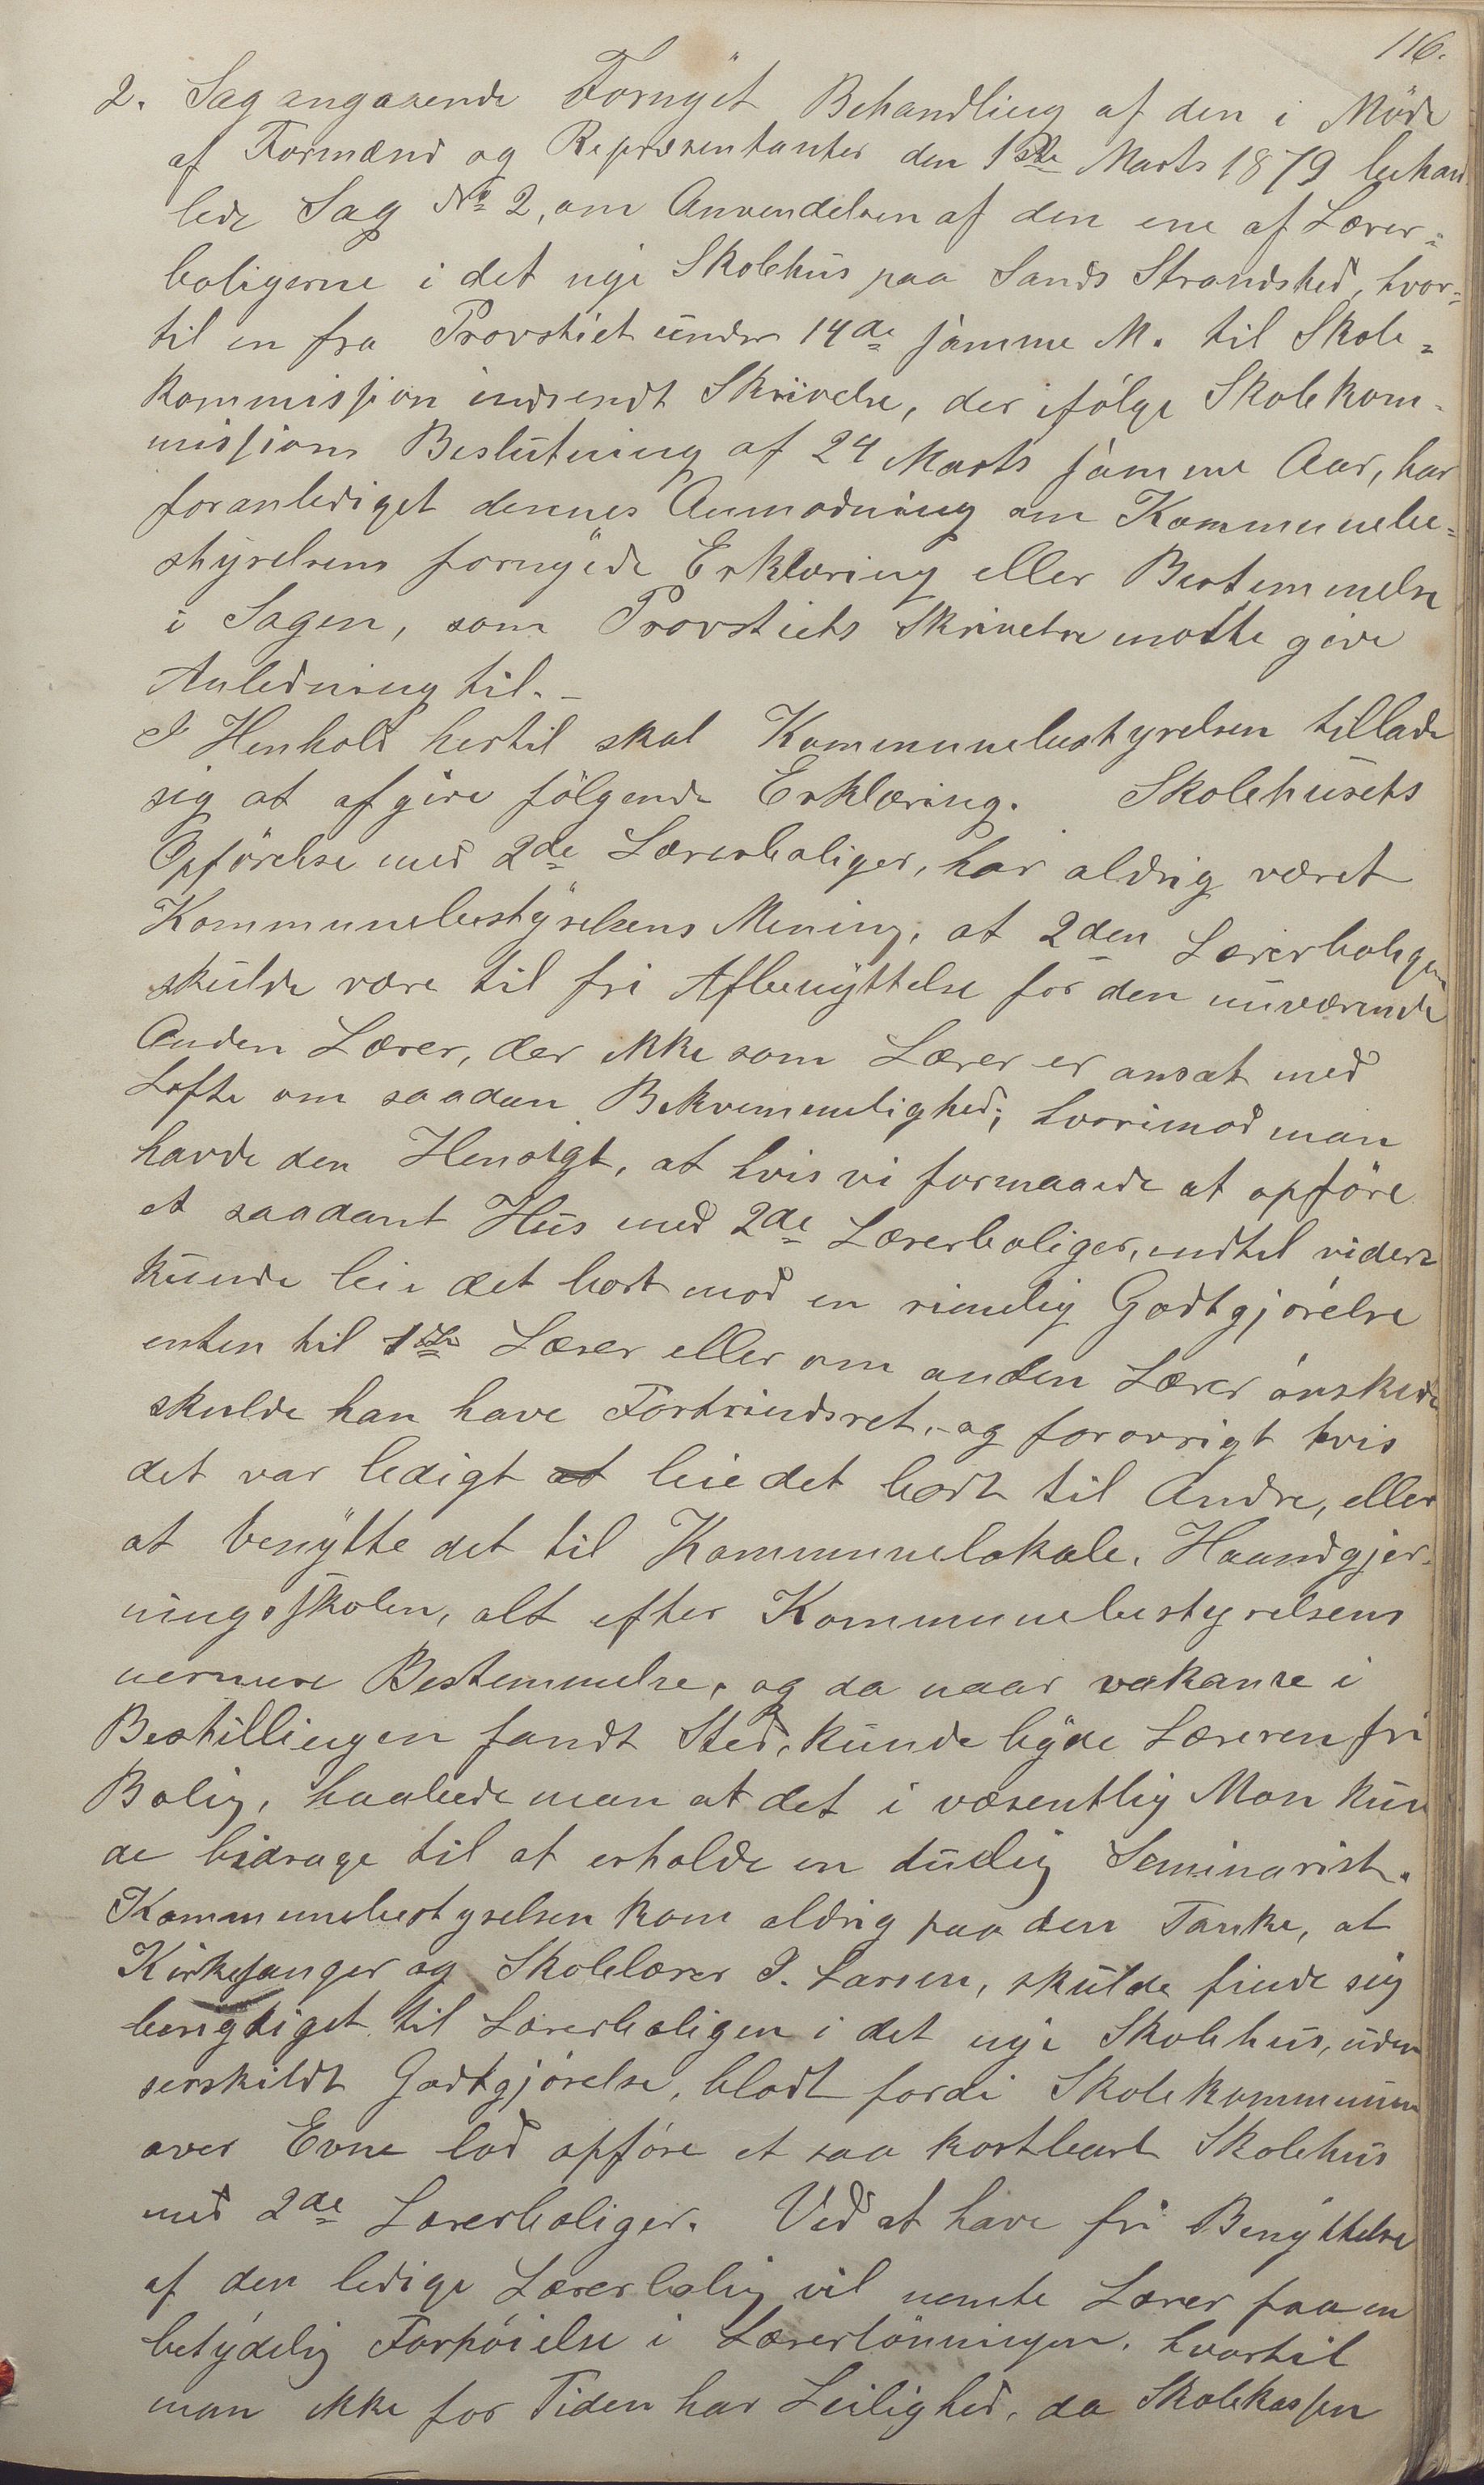 116.
2. Sag angaaende Fornyet Behandling af den i Møde
af Formænd og Repræsentanter den 1ste Marts 1879 behan
lede Sag No 2, om Anvendelsen af den ene af Lærer-
boligerne i det nye Skolehus paa Sands Strandsted, hvor-
til en fra Provstiet under 14de samme M. til Skole-
kommission indsendt Skrivelse, der ifølge Skolekom-
missions Beslutning af 24 Marts samme Aar, har
foranlediget dennes Anmodning om Kommunebe-
styrelsens fornyede Erklæring eller Bestemmelse
i Sagen, som Provstiets Skrivelse motte give
Anledning til. -
I Henhold hertil skal Kommunebestyrelsen tillade
sig at afgive følgende Erklæring. Skolehusets
Opførelse med 2de Lærerboliger, har aldrig været
Kommunebestyrelsens Mening, at 2den Lærerboligen
skulde være til fri Afbenyttelse for den nuværende
Anden Lærer, der ikke som Lærer er ansat med
Løfte om saadan Bekvemmelighed; hvorimod man
havde den Hensigt, at hvis vi formaaede at opføre
et saadant Hus med 2de Lærerboliger, indtil videre
kunde leie det bort mod en rimelig Godtgjørelse
enten til 1ste Lærer eller om anden Lærer ønskede
skulde han have Fortrindsret, - og forøvrigt hvis
det var ledigt at leie det bort til Andre, eller
at benytte det til Kommunelokale, Haandgjer-
ningsskolen, alt efter Kommunebestyrelsens
nermere Bestemmelse, og da naar vakanse i
Bestillingen fandt Sted, kunde byde Læreren fri
Bolig, haabede man at det i væsentlig Mon kun
de bidrage til at erholde en dudlig Seminarist.
Kommunebestyrelsen kom aldrig paa den Tanke, at
Kirkesanger og Skolelærer I. Larsen, skulde finde sig
berigtiget til Lærerboligen i det nye Skolehus, uden
serskildt Godtgjørelse, blodt fordi Skolekommunen
over Evne lod opføre et saa kostbart Skolehus
med 2de Lærerboliger. Ved at have fri Benyttelse
af den ledige Lærerbolig vil nemte Lærer faa en
betydelig Forhøielse i Lærerlønningen, hvortil
man ikke for Tiden har Leilighed, da Skolekassen